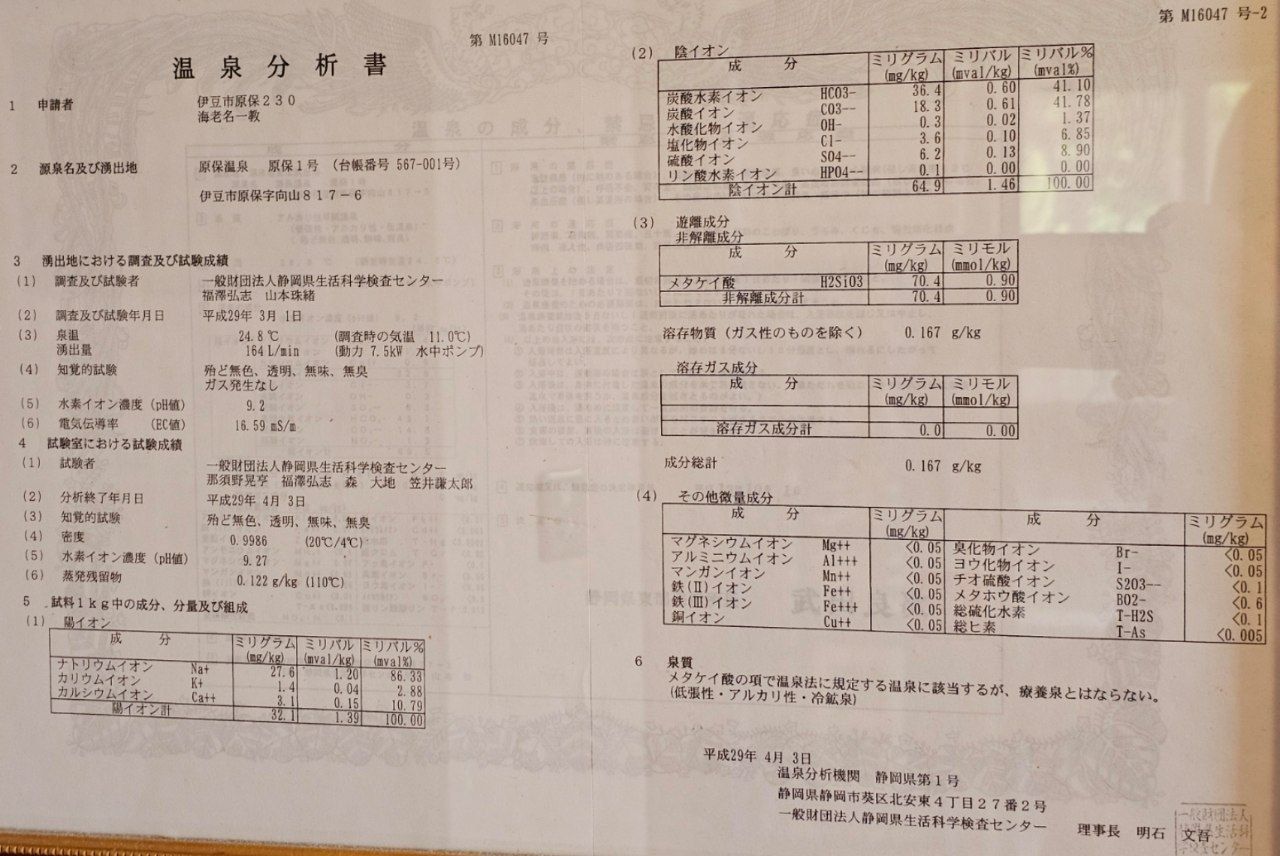 第 M16047 号
温泉分析書
1 申請者 伊豆市原保230
海老名一教
2 源泉名及び湧出地 原保温泉 原保1号 (台帳番号 567-001号)
伊豆市原保字向山817-6
3 湧出地における調査及び試験成績
(1) 調査及び試験者 一般財団法人静岡県生活科学検査センター
福澤弘志 山本珠緒
(2) 調査及び試験年月日 平成29年 3月 1日
(3) 泉温 24.8 ℃ (調査時の気温 11.0℃)
湧出量 164 L/min (動力 7.5kW 水中ポンプ)
(4) 知覚的試験 殆ど無色、透明、無味、無臭
ガス発生なし
(5) 水素イオン濃度 (pH値) 9.2
(6) 電気伝導率 (EC値) 16.59 mS/m
4 試験室における試験成績
(1) 試験者 一般財団法人静岡県生活科学検査センター
那須野晃亨 福澤弘志 森 大地 笠井謙太郎
(2) 分析終了年月日 平成29年 4月 3日
(3) 知覚的試験 殆ど無色、透明、無味、無臭
(4) 密度 0.9986 (20℃/4℃)
(5) 水素イオン濃度 (pH値) 9.27
(6) 蒸発残留物 0.122 g/kg (110℃)
5 試料1kg中の成分、分量及び組成
(1) 陽イオン
成 分 ミリグラム (mg/kg) ミリバル (mval/kg) ミリバル% (mval%)
ナトリウムイオン Na+ 27.6 1.20 86.33
カリウムイオン K+ 1.4 0.04 2.88
カルシウムイオン Ca++ 3.1 0.15 10.79
陽イオン計 32.1 1.39 100.00
第 M16047 号-2
(2) 陰イオン
成 分 ミリグラム (mg/kg) ミリバル (mval/kg) ミリバル% (mval%)
炭酸水素イオン HCO3- 36.4 0.60 41.10
炭酸イオン CO3-- 18.3 0.61 41.78
水酸化物イオン OH- 0.3 0.02 1.37
塩化物イオン Cl- 3.6 0.10 6.85
硫酸イオン SO4-- 6.2 0.13 8.90
リン酸水素イオン HPO4-- 0.1 0.00 0.00
陰イオン計 64.9 1.46 100.00
(3) 遊離成分
非解離成分
成 分 ミリグラム (mg/kg) ミリモル (mmol/kg)
メタケイ酸 H2SiO3 70.4 0.90
非解離成分計 70.4 0.90
溶存物質 (ガス性のものを除く) 0.167 g/kg
溶存ガス成分
成 分 ミリグラム (mg/kg) ミリモル (mmol/kg)
溶存ガス成分計 0.0 0.00
成分総計 0.167 g/kg
(4) その他微量成分
成 分 ミリグラム (mg/kg) 成 分 ミリグラム (mg/kg)
マグネシウムイオン Mg++ <0.05 臭化物イオン Br- <0.05
アルミニウムイオン Al+++ <0.05 ヨウ化物イオン I- <0.05
マンガンイオン Mn++ <0.05 チオ硫酸イオン S2O3-- <0.1
鉄(Ⅱ)イオン Fe++ <0.05 メタホウ酸イオン BO2- <0.6
鉄(Ⅲ)イオン Fe+++ <0.05 総硫化水素 T-H2S <0.1
銅イオン Cu++ <0.05 総ヒ素 T-As <0.005
6 泉質
メタケイ酸の項で温泉法に規定する温泉に該当するが、療養泉とはならない。
(低張性・アルカリ性・冷鉱泉)
平成29年 4月 3日
温泉分析機関 静岡県第1号
静岡県静岡市葵区北安東4丁目27番2号
一般財団法人静岡県生活科学検査センター 理事長 明石 文吾